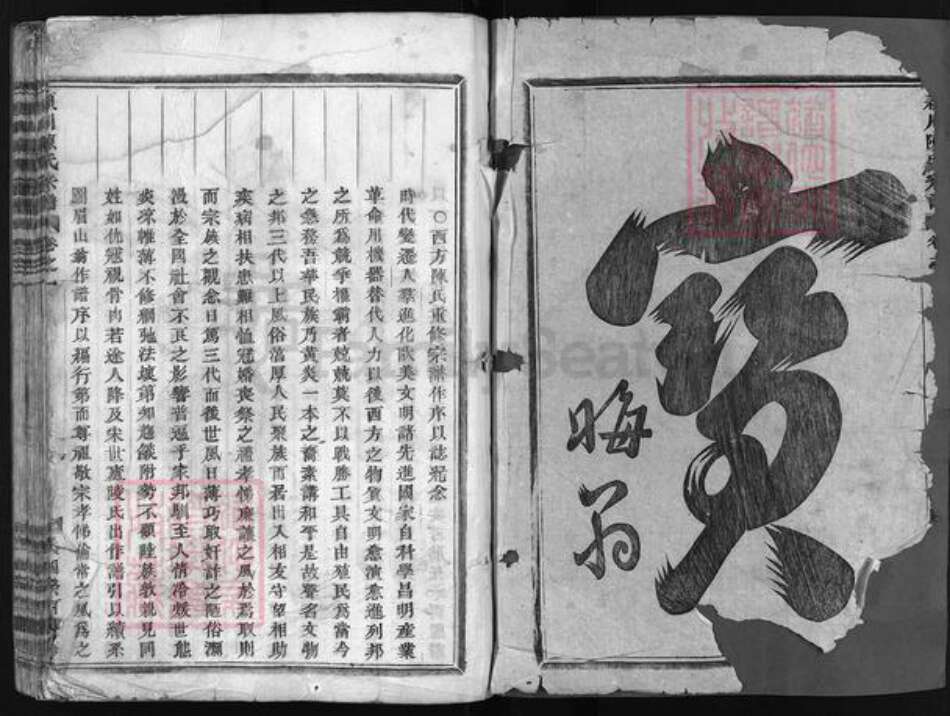 寶
晦翁
○西方陳氏重修宗譜作序以誌紀念
時代變遷人羣進化歐美文明諸先進國家自科學昌明產業
革命用機器替代人力以後西方之物質文明愈演愈進列邦
之所爲競爭權霸者兢兢莫不以戰勝工具自由殖民爲當今
之急務吾華民族乃黃炎一本之裔素講和平是故譽名文物
之邦三代以上風俗滀厚人民聚族而居出入相友守望相助
疾病相扶患難相恤冠婚喪祭之禮孝悌廉讓之風於焉取則
而宗族之觀念日篤三代而後世風日薄巧取奸詐之陋俗瀰
漫於全國社會不良之影響普遍乎家邦馴至人情冷煖世態
炎凉雜薄不修綱弛法墜第知趨儀附勢不顧睦族敦親見同
姓如仇寇視骨肉若途人降及宋世廬陵氏出作譜引以續系
圖眉山翁作譜序以稱行第而尊祖敬宗孝悌倫常之風爲之